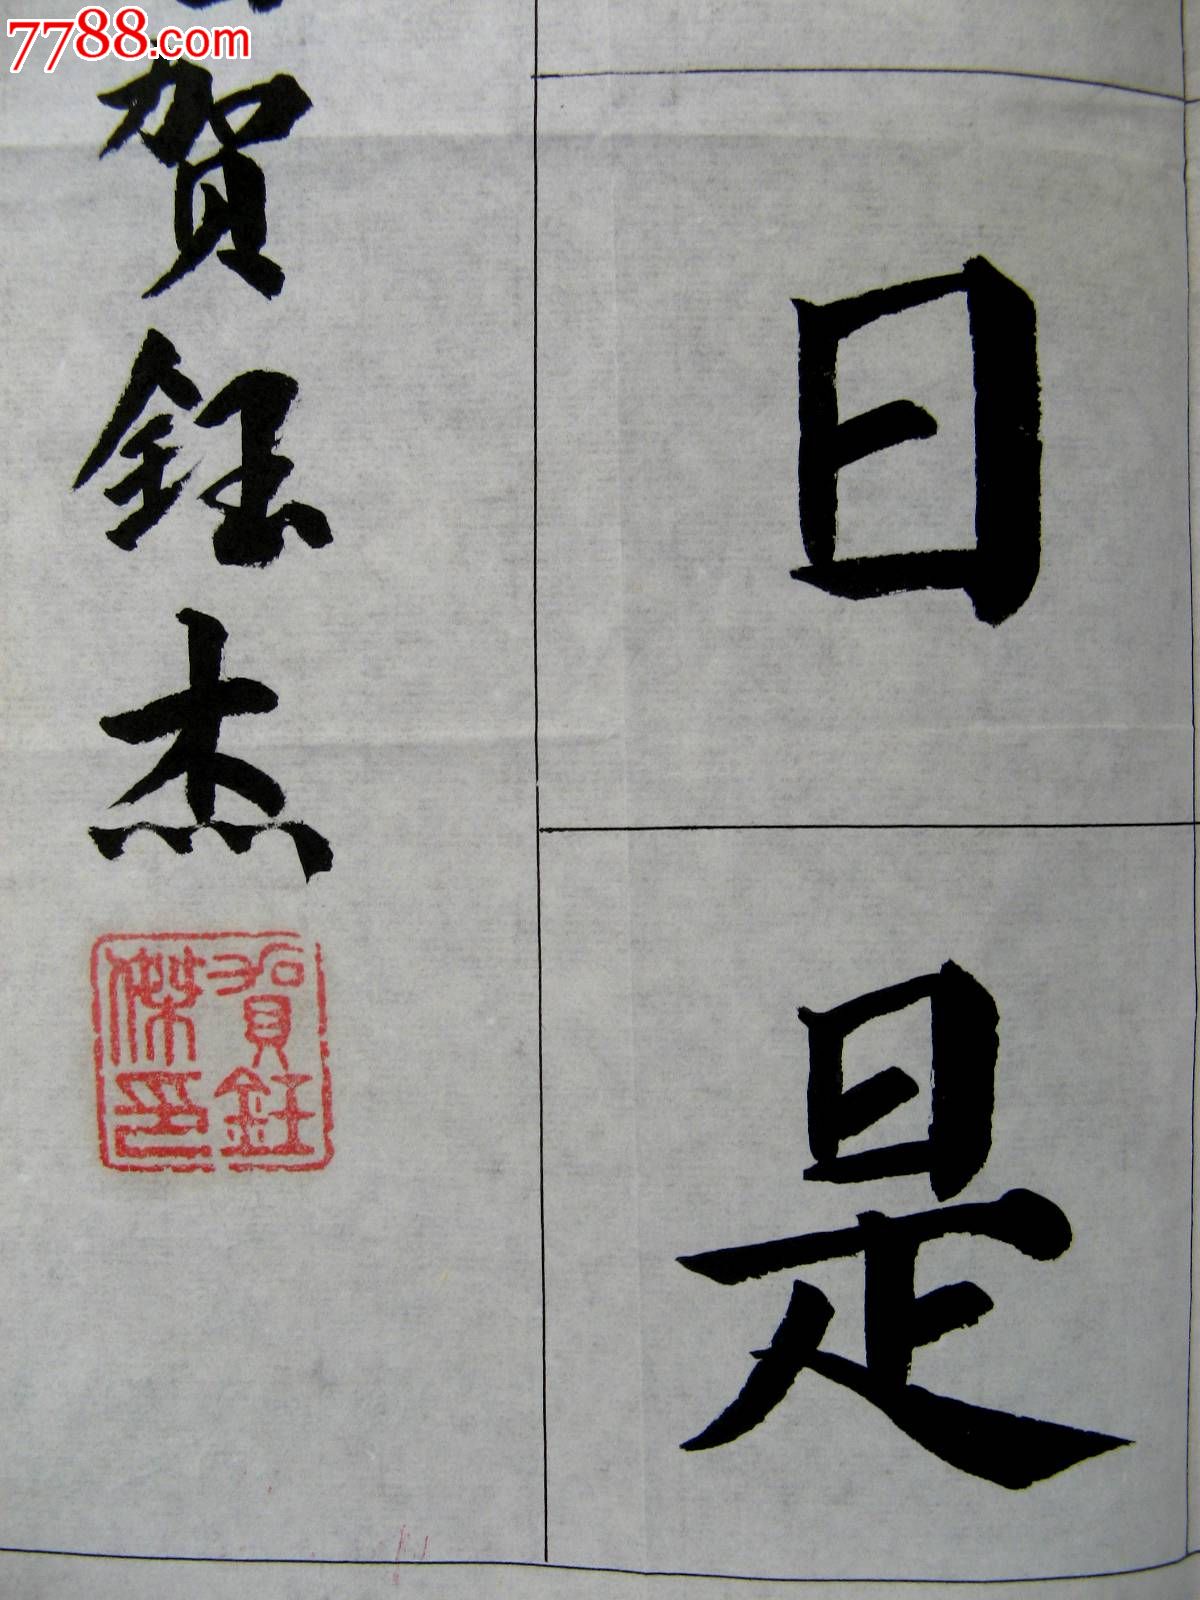 7788.com
日是
贺钰杰
賀鈺
傑印